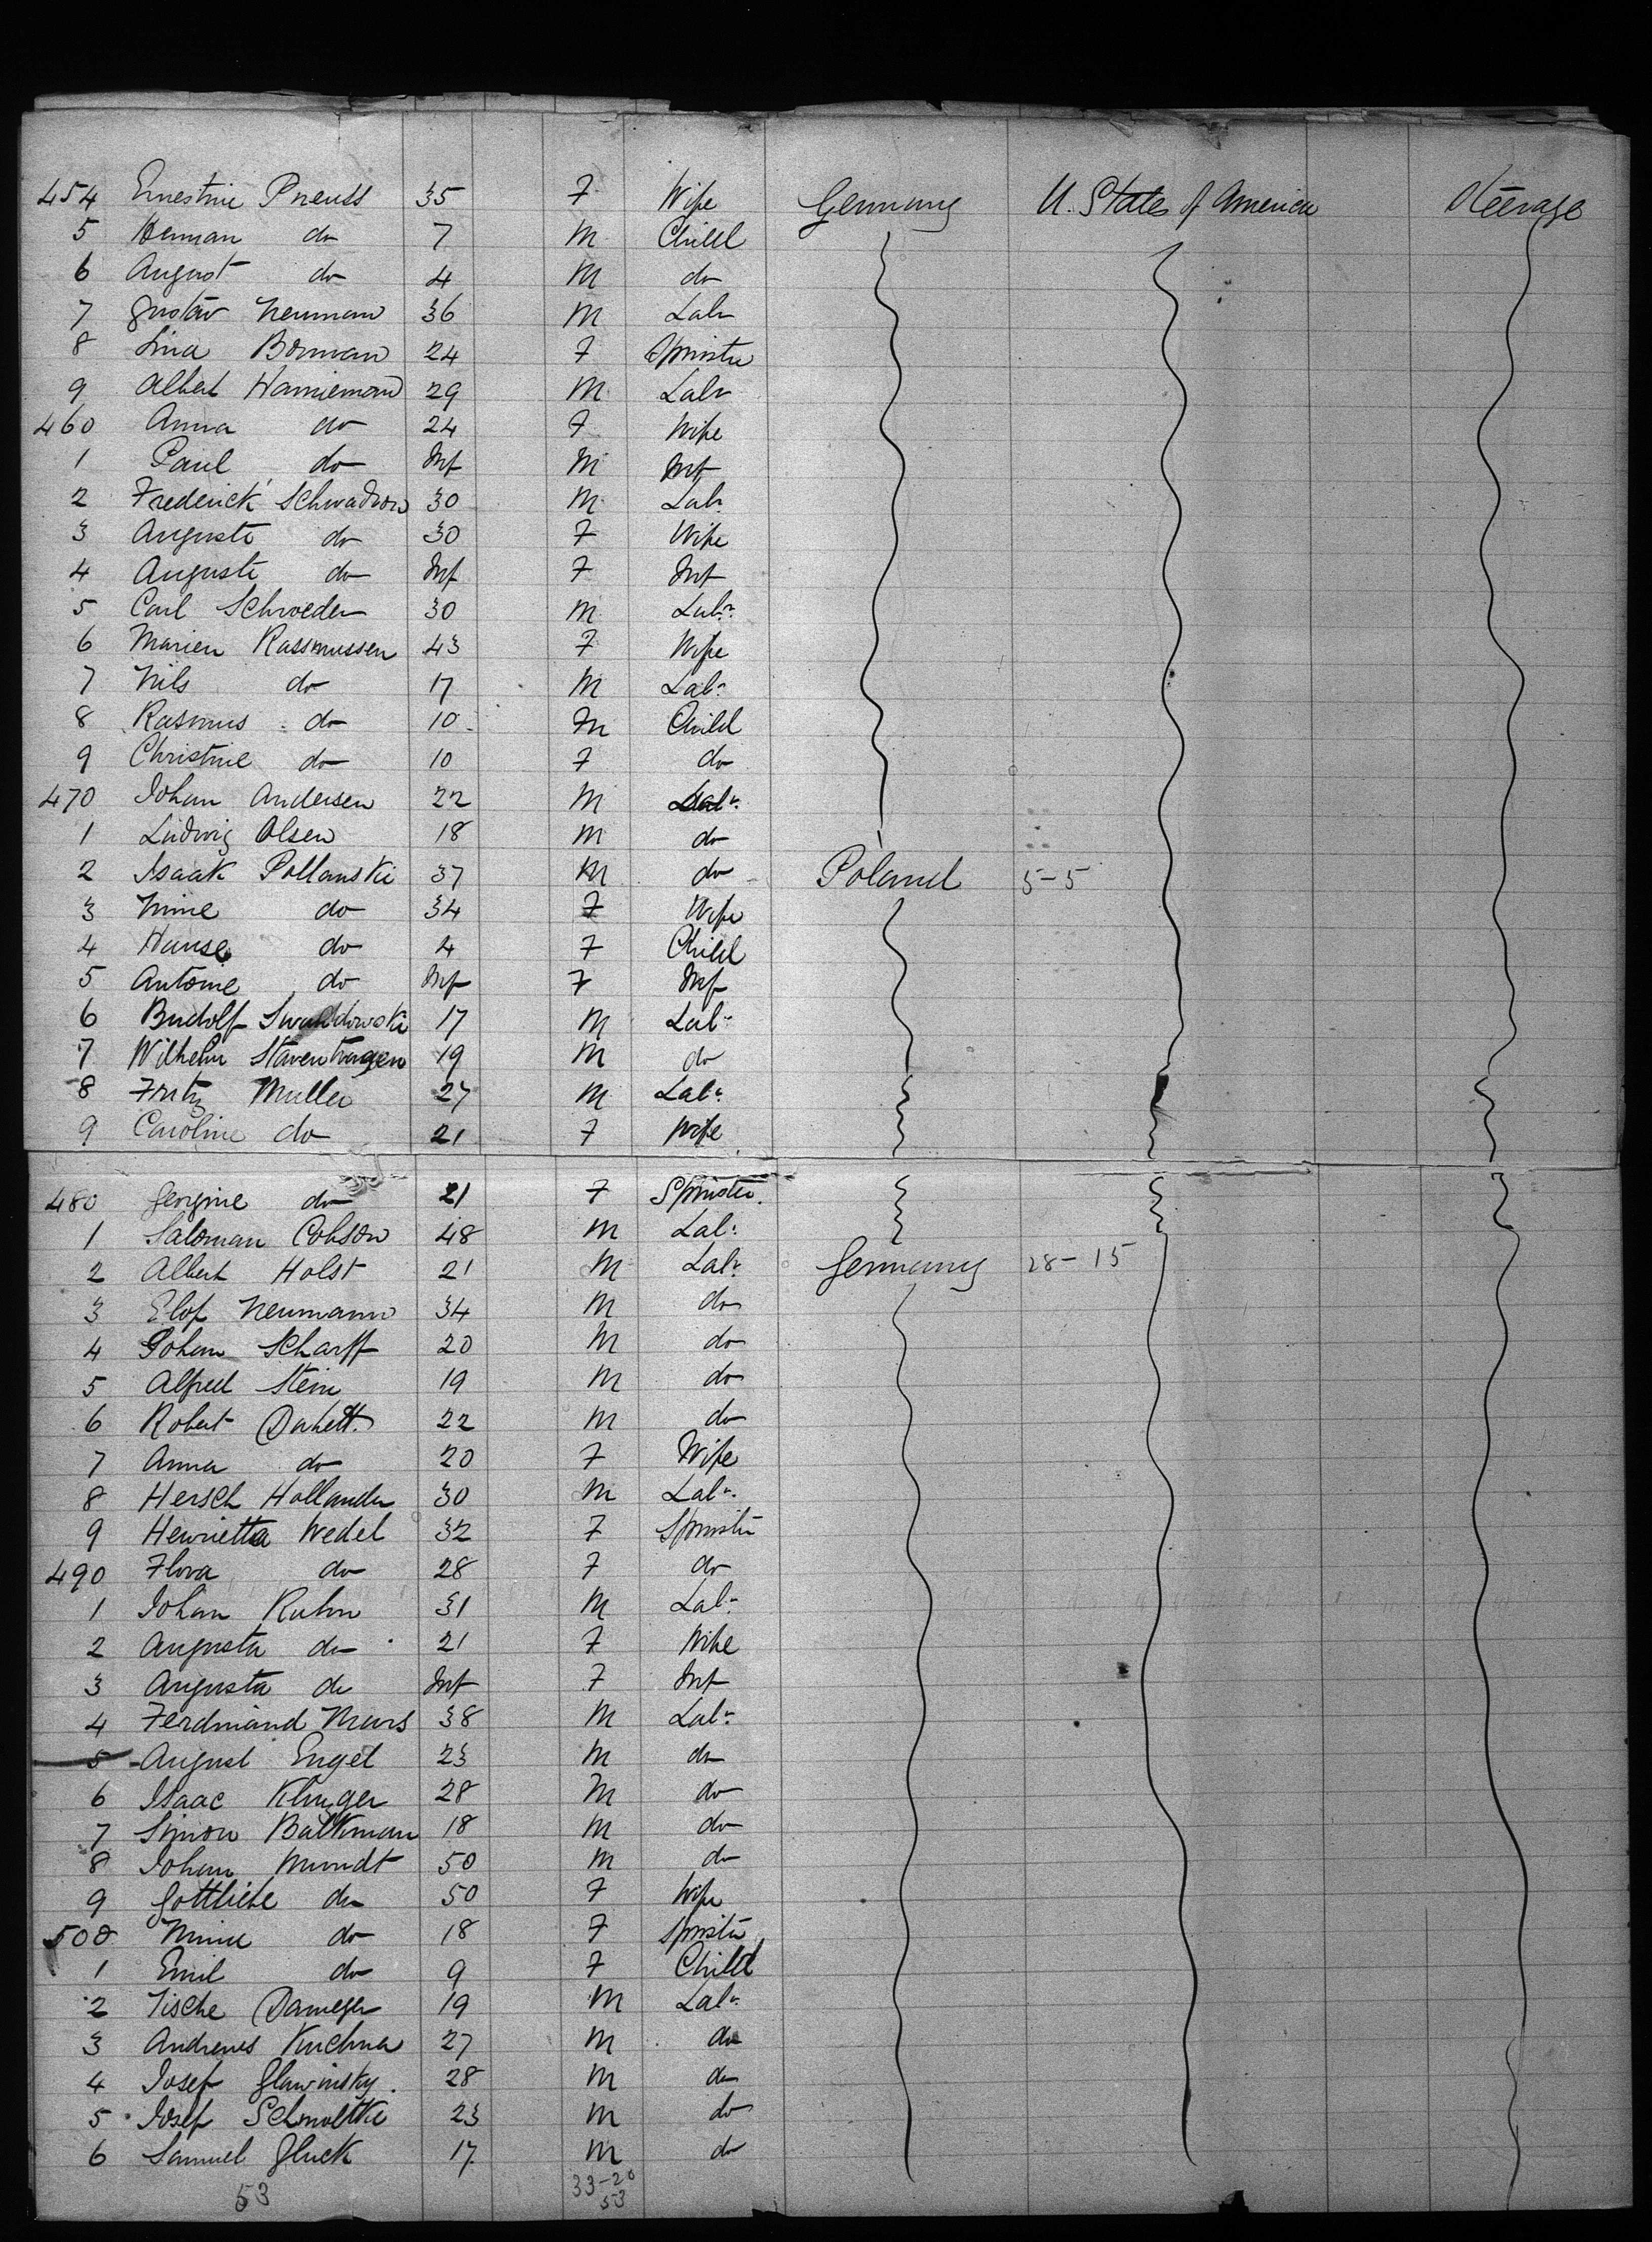 454 Ernestine Preuss 35 F Wife Germany U. States of America Steerage
5 Herman do 7 M Child
6 August do 4 M do
7 Gustav Neumann 36 M Labr
8 Lina Borman 24 F Spinster
9 Albert Hannemann 29 M Labr
460 Anna do 24 F Wife
1 Paul do Inf M Inf
2 Frederick Schwadrow 30 M Labr
3 Auguste do 30 F Wife
4 Auguste do Inf F Inf
5 Carl Schroeder 30 M Labr
6 Marien Rassmussen 43 F Wife
7 Nils do 17 M Labr
8 Rasmus do 10 M Child
9 Christine do 10 F do
470 Johan Andersen 22 M Labr
1 Ludwig Olsen 18 M do
2 Isaak Pollanski 37 M do Poland 5-5
3 Mine do 34 F Wife
4 Hanse do 4 F Child
5 Antoine do Inf F Inf
6 Rudolf 17 M Labr
7 Wilhelm Stavenhagen 19 M do
8 Fritz Muller 27 M Labr
9 Caroline do 21 F Wife
480 Gergine do 21 F Spinster
1 Saloman Cohson 48 M Labr
2 Albert Holst 21 M Labr Germany 28-15
3 Elof Neumann 34 M do
4 Johan Scharff 20 M do
5 Alfred Stein 19 M do
6 Robert 22 M do
7 Anna do 20 F Wife
8 Hersch Hollander 30 M Labr
9 Henrietta Wedel 32 F Spinster
490 Flora do 28 F do
1 Johan Kuhn 31 M Labr
2 Augusta do 21 F Wife
3 Augusta do Inf F Inf
4 Ferdinand Mars 38 M Labr
5 August Engel 23 M do
6 Isaac Klinger 28 M do
7 Simon Balkman 18 M do
8 Johan Mundt 50 M do
9 Gottliebe do 50 F Wife
500 Minie do 18 F Spinster
1 Emil do 9 F Child
2 Tische 19 M Labr
3 Andrews Kuchna 27 M do
4 Josef Glawinsky 28 M do
5 Josef Schmoltke 23 M do
6 Samuel Gluck 17 M do
53 33-20
53